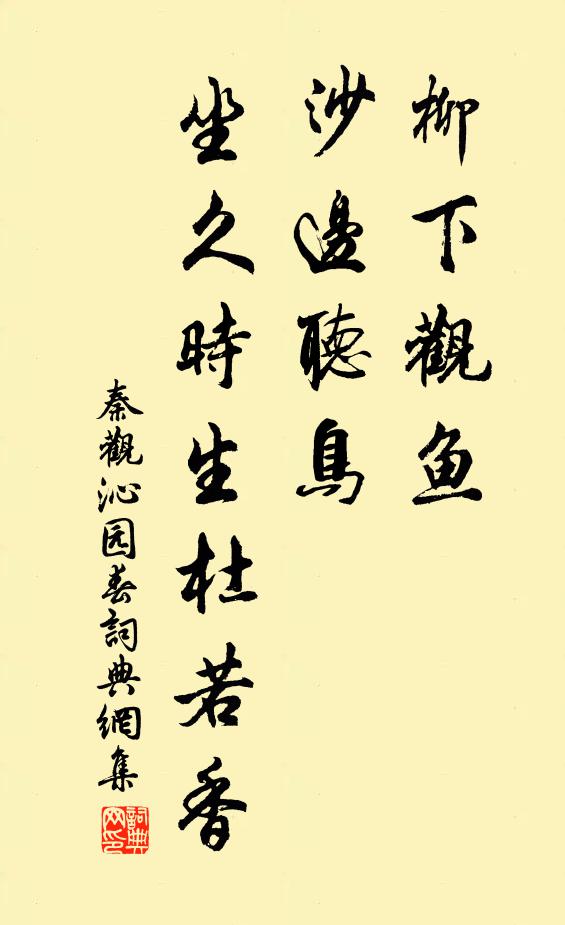 柳下觀鱼
沙邊聽鳥
坐久時生杜若香
秦觀沁园春詞典網集
詞典网印